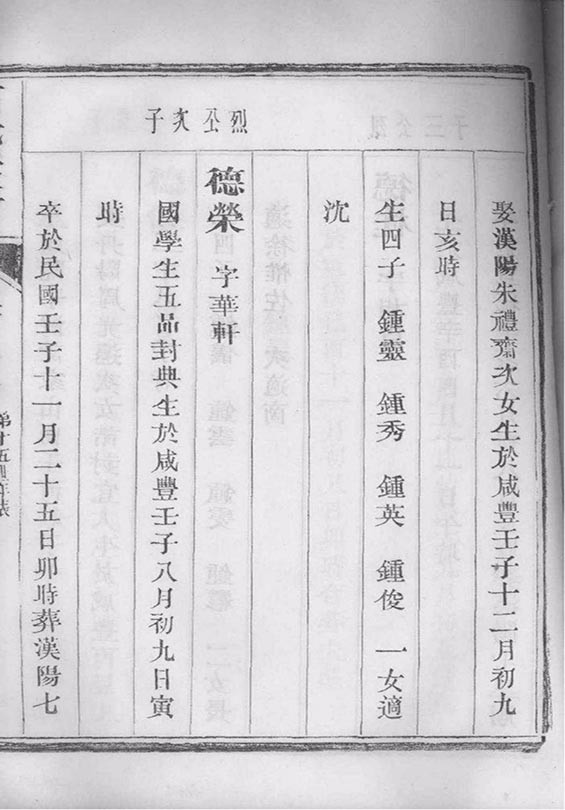 娶漢陽朱禮齋次女生於咸豐壬子十二月初九
日亥時
生四子 鍾靈 鍾秀 鍾英 鍾俊 一女適
沈
烈公次子
德榮 字華軒
國學生五品封典生於咸豐壬子八月初九日寅
時
卒於民國壬子十一月二十五日卯時葬漢陽七
第十五世年表